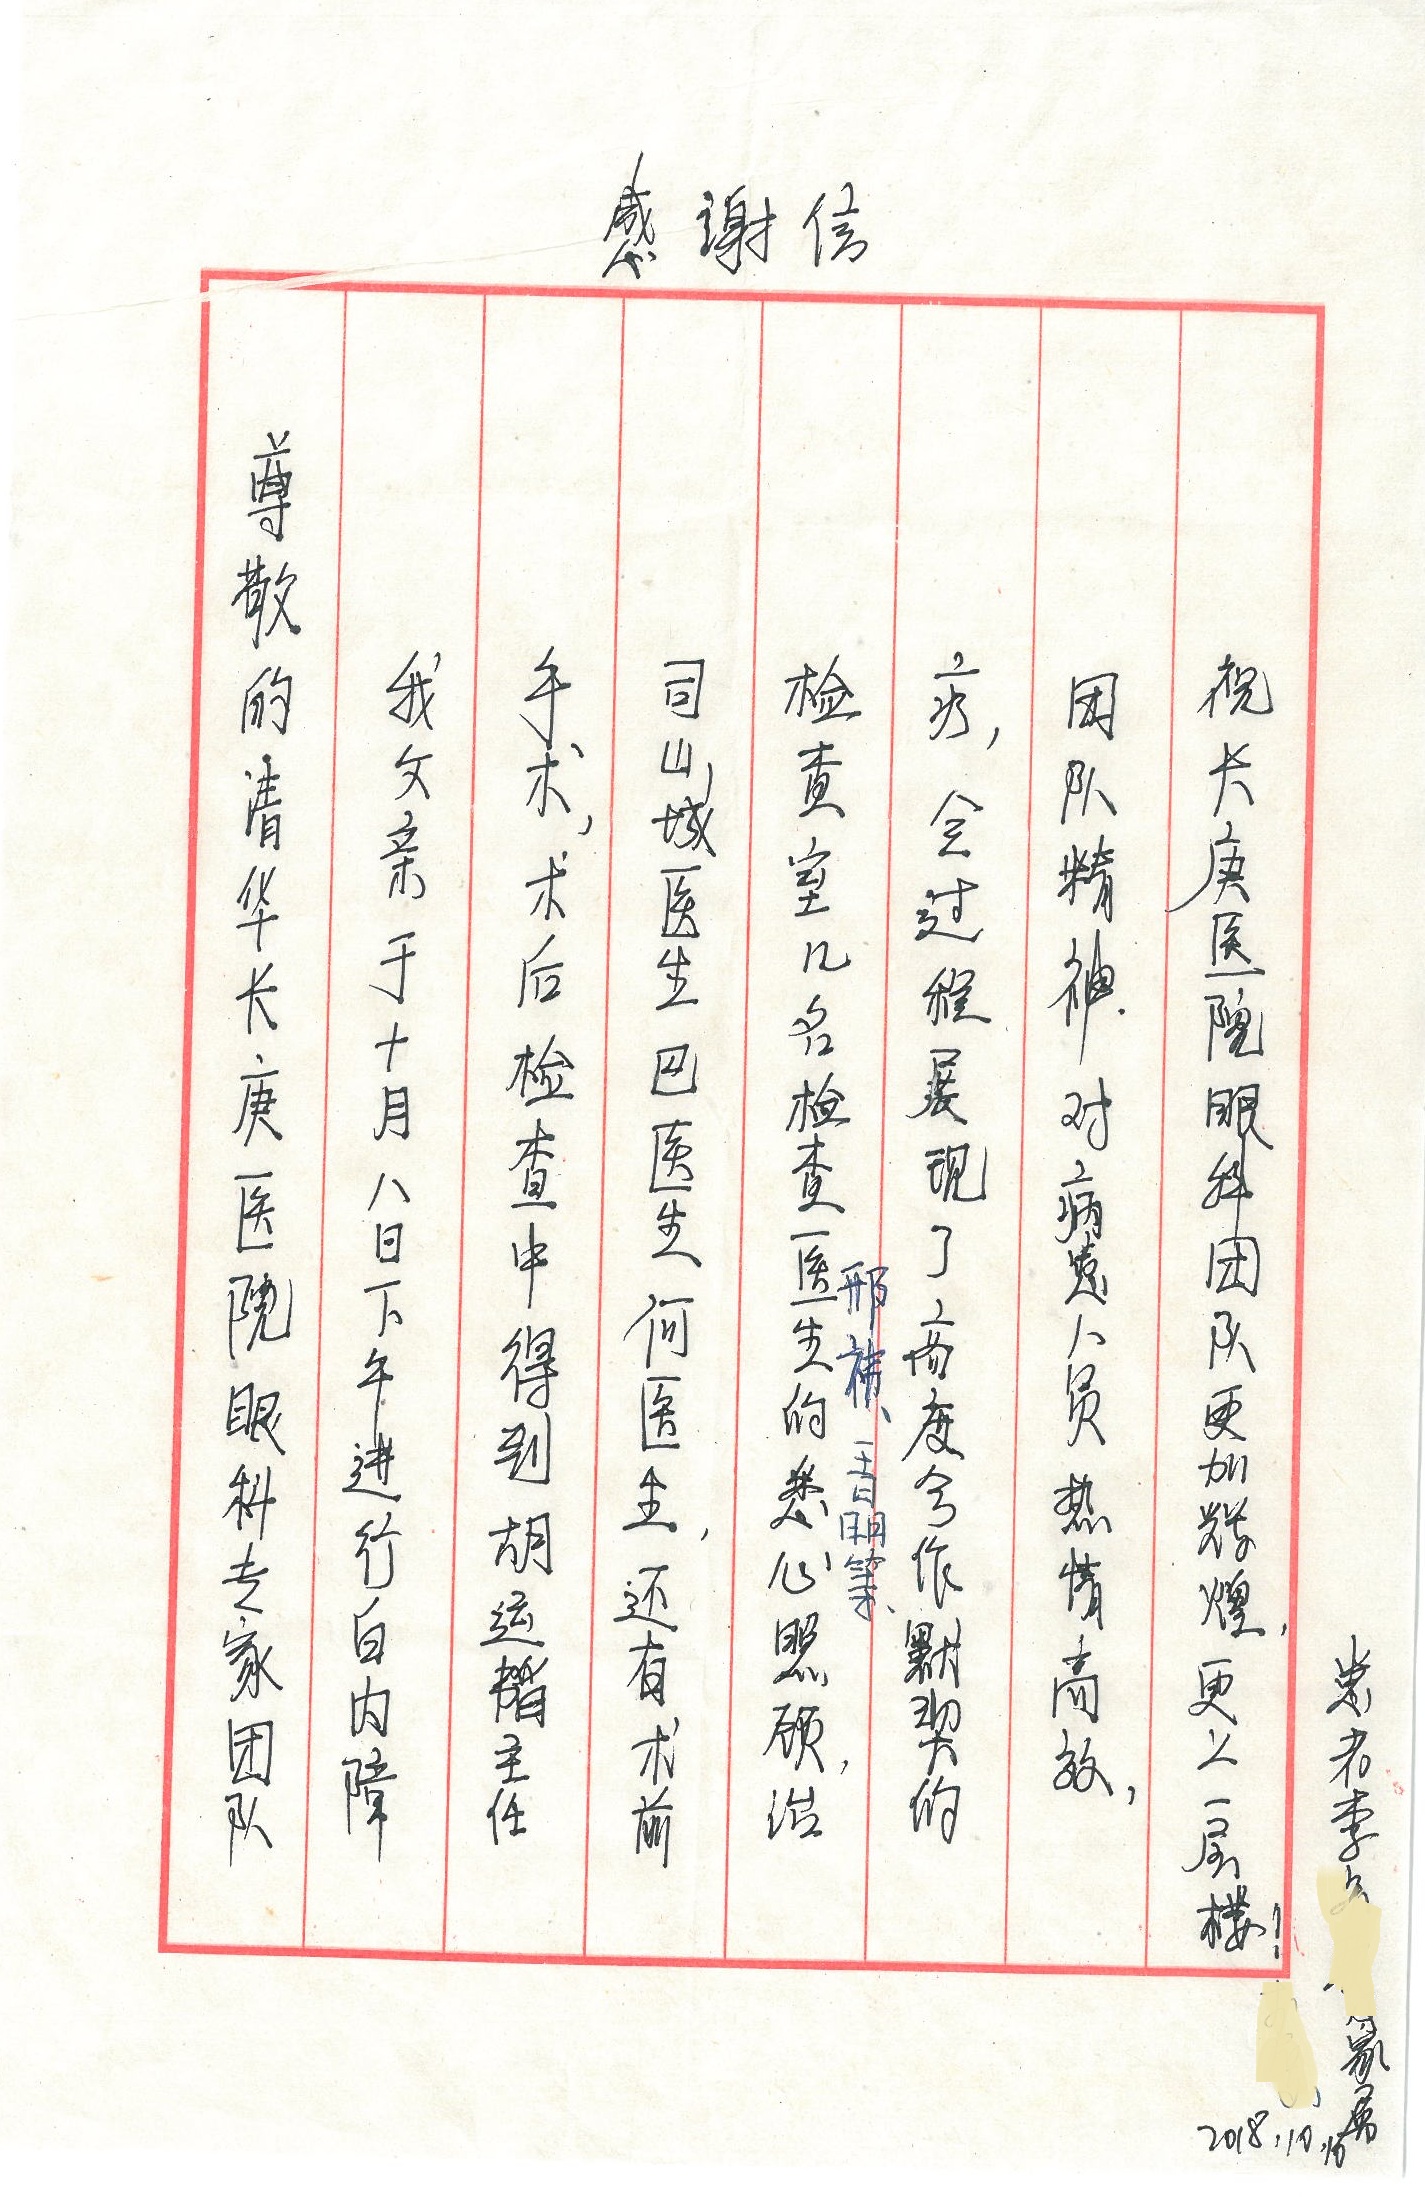 感谢信
尊敬的清华长庚医院眼科专家团队
我父亲于十月八日下午进行白内障
手术，术后检查中得到胡运韬主任
司山城医生巴医生何医生，还有术前
检查室几名检查医生的悉心照顾，治
邢祎、王青
疗，全过程展现了高度合作默契的
团队精神.对病患人员热情高效，
祝长庚医院眼科团队更加辉煌，更上一层楼！
患者李
家属
2018.10.10